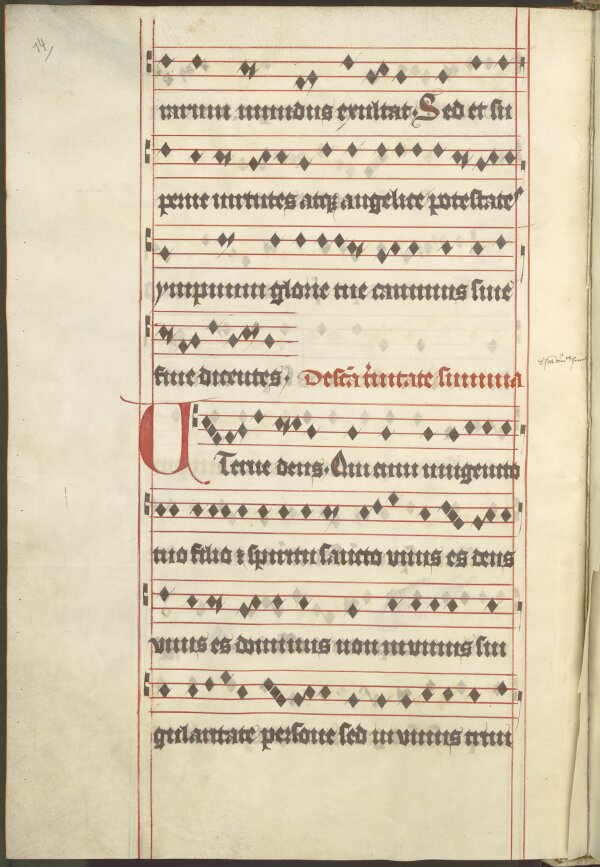 14
rarum mundus exultat. Sed et su
perne uirtutes atq; angelice potestates
ympnum glorie tue canimus sine
fine dicentes. De scā trinitate summa
Eterne deus. Qui cum unigenito
tuo filio ⁊ spiritu sancto vnus es deus
vnus es dominus non in vnius sin
gularitate persone sed in vnius trini